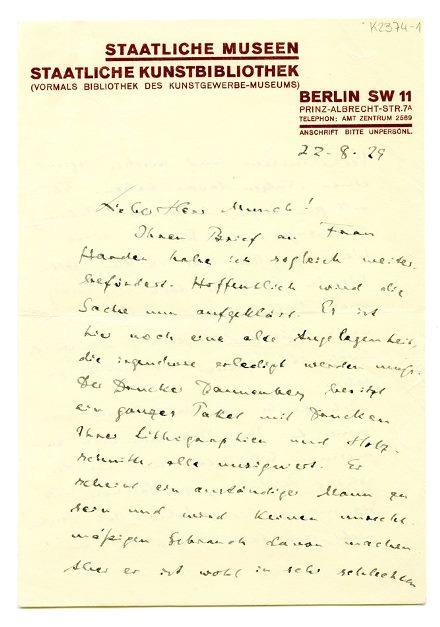 K2374-1
STAATLICHE MUSEEN
STAATLICHE KUNSTBIBLIOTHEK
(VORMALS BIBLIOTHEK DES KUNSTGEWERBE-MUSEUMS)
BERLIN SW 11
PRINZ-ALBRECHT-STR.7A
TELEPHON: AMT ZENTRUM 2569
ANSCHRIFT BITTE UNPERSÖNL.
22-8-29
Lieber Herr Munch!
Ihren Brief an Frau
Harden habe ich sogleich weiter
befördert. Hoffentlich wird die
Sache nun aufgeklärt. Es ist
hier noch eine alte Angelegenheit,
die irgendwie erledigt werden muss.
Der Drucker Dannenberg besitzt
ein ganzes Paket mit Drucken
Ihrer Lithographien und Holz-
schnitte, alle unsigniert. Er
scheint ein anständiger Mann zu
sein und wird keinen unrecht-
mäßigen Gebrauch davon machen
Aber er ist wohl in sehr schlechten